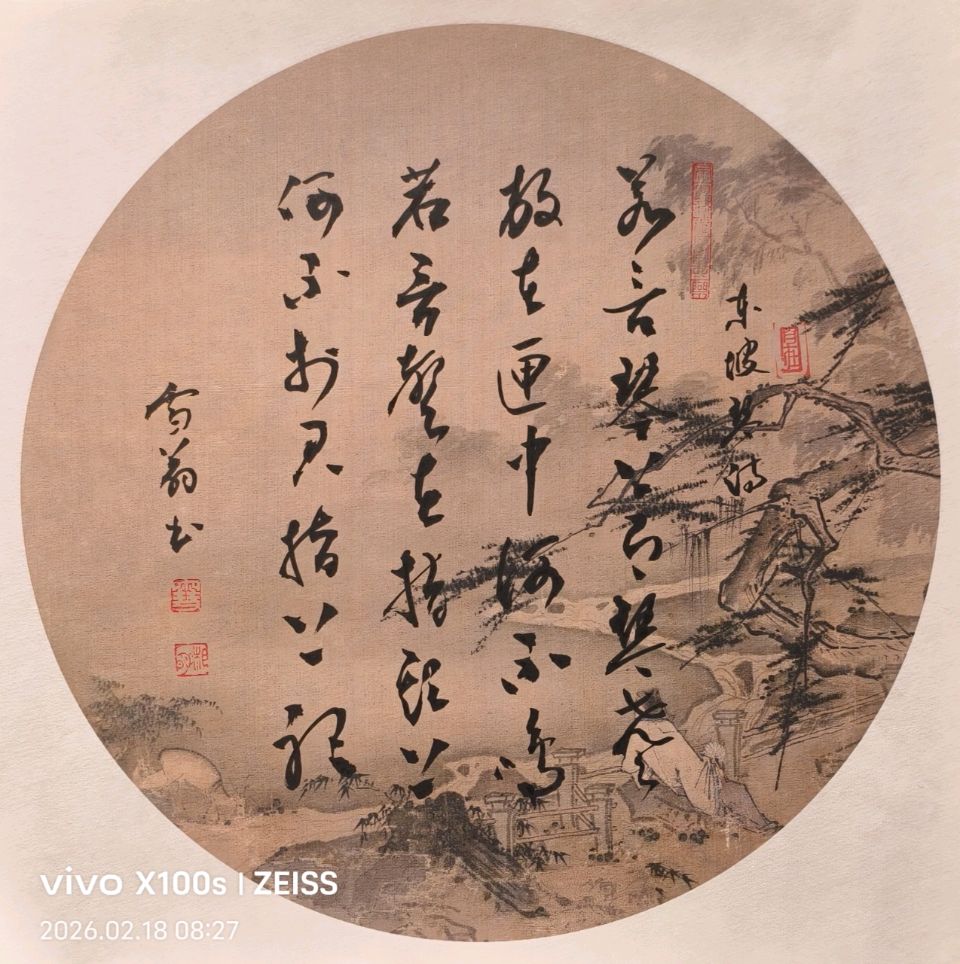 东坡琴诗
若言琴上有琴聲
放在匣中何不鸣
若言聲在指头上
何不於君指上听
雪翁书
vivo X100s | ZEISS
2026.02.18 08:27